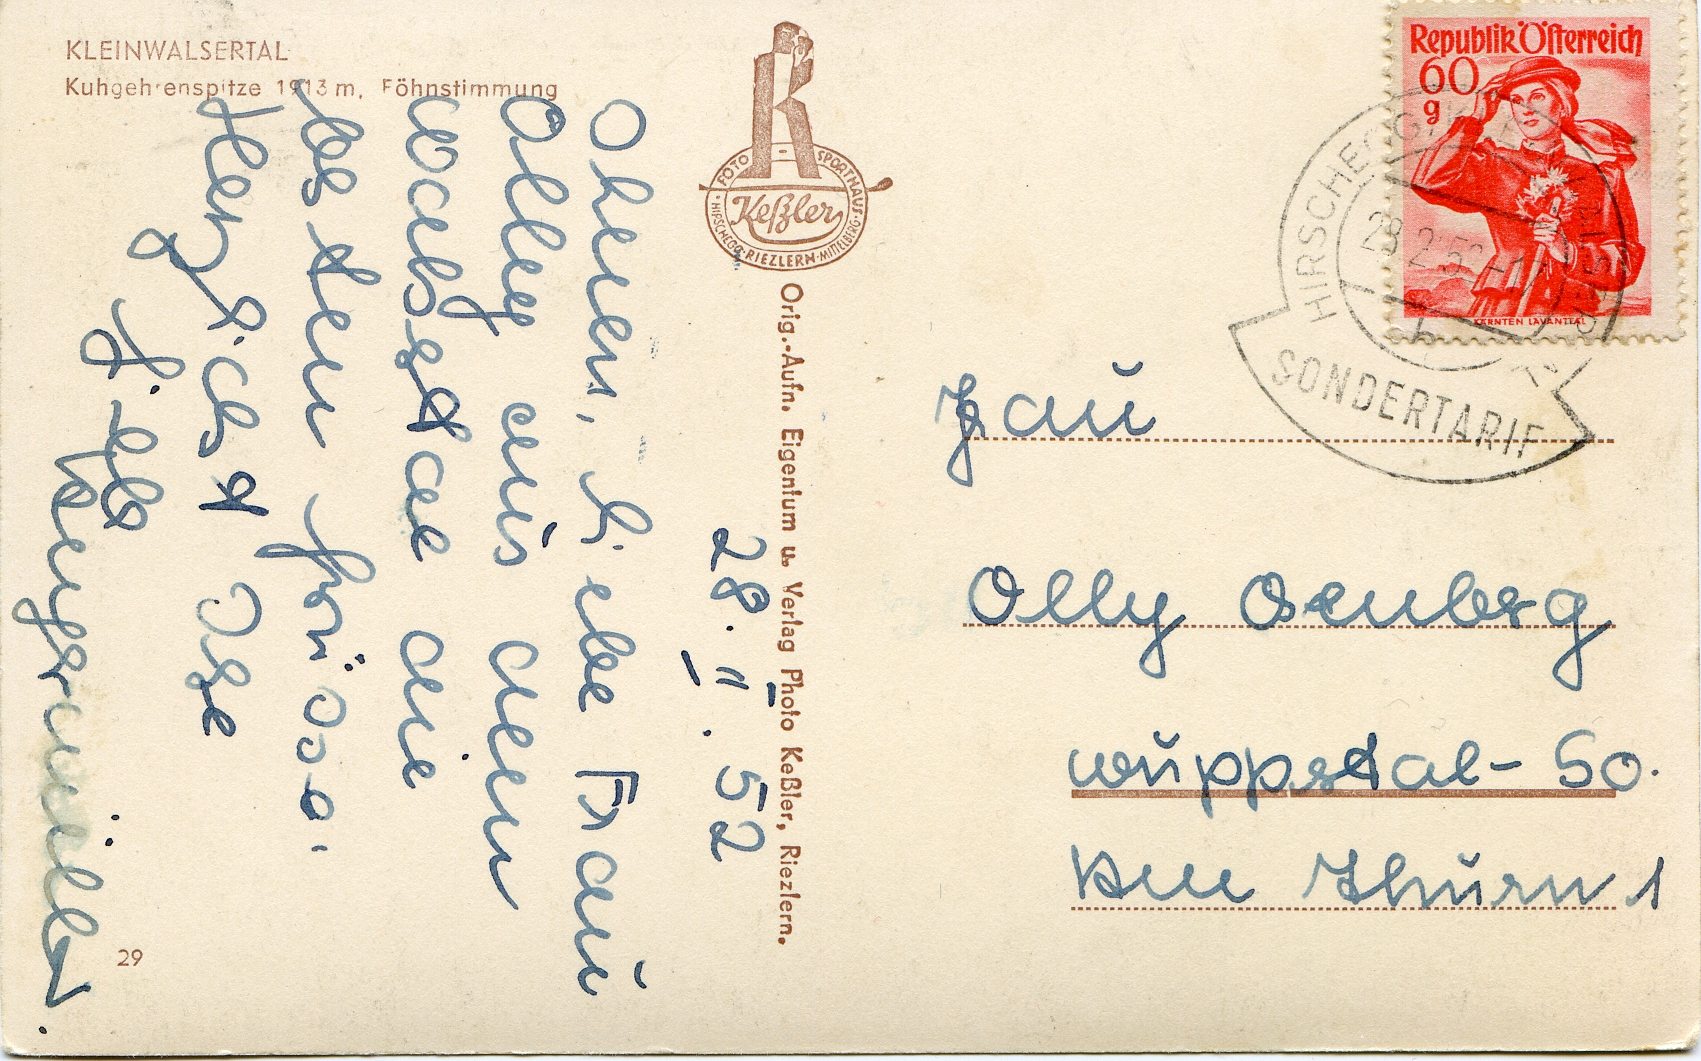 KLEINWALSERTAL
Kuhgehrenspitze 1913 m, Föhnstimmung
FOTO - SPORTHAUS
Keßler
HIRSCHEGG · RIEZLERN · MITTELBERG
Orig.-Aufn. Eigentum u. Verlag Photo Keßler, Riezlern.
Republik Österreich
60
g
KÄRNTEN LAVANTTAL
HIRSCHEGG
28.2.52
b
SONDERTARIF
28. II. 52
Ihnen, liebe Frau
Olly aus dem
Walsertal die
besten Grüsse.
Herzlichst Ihre
Olly
Wuppertal-So.
Am Thurn 1
29